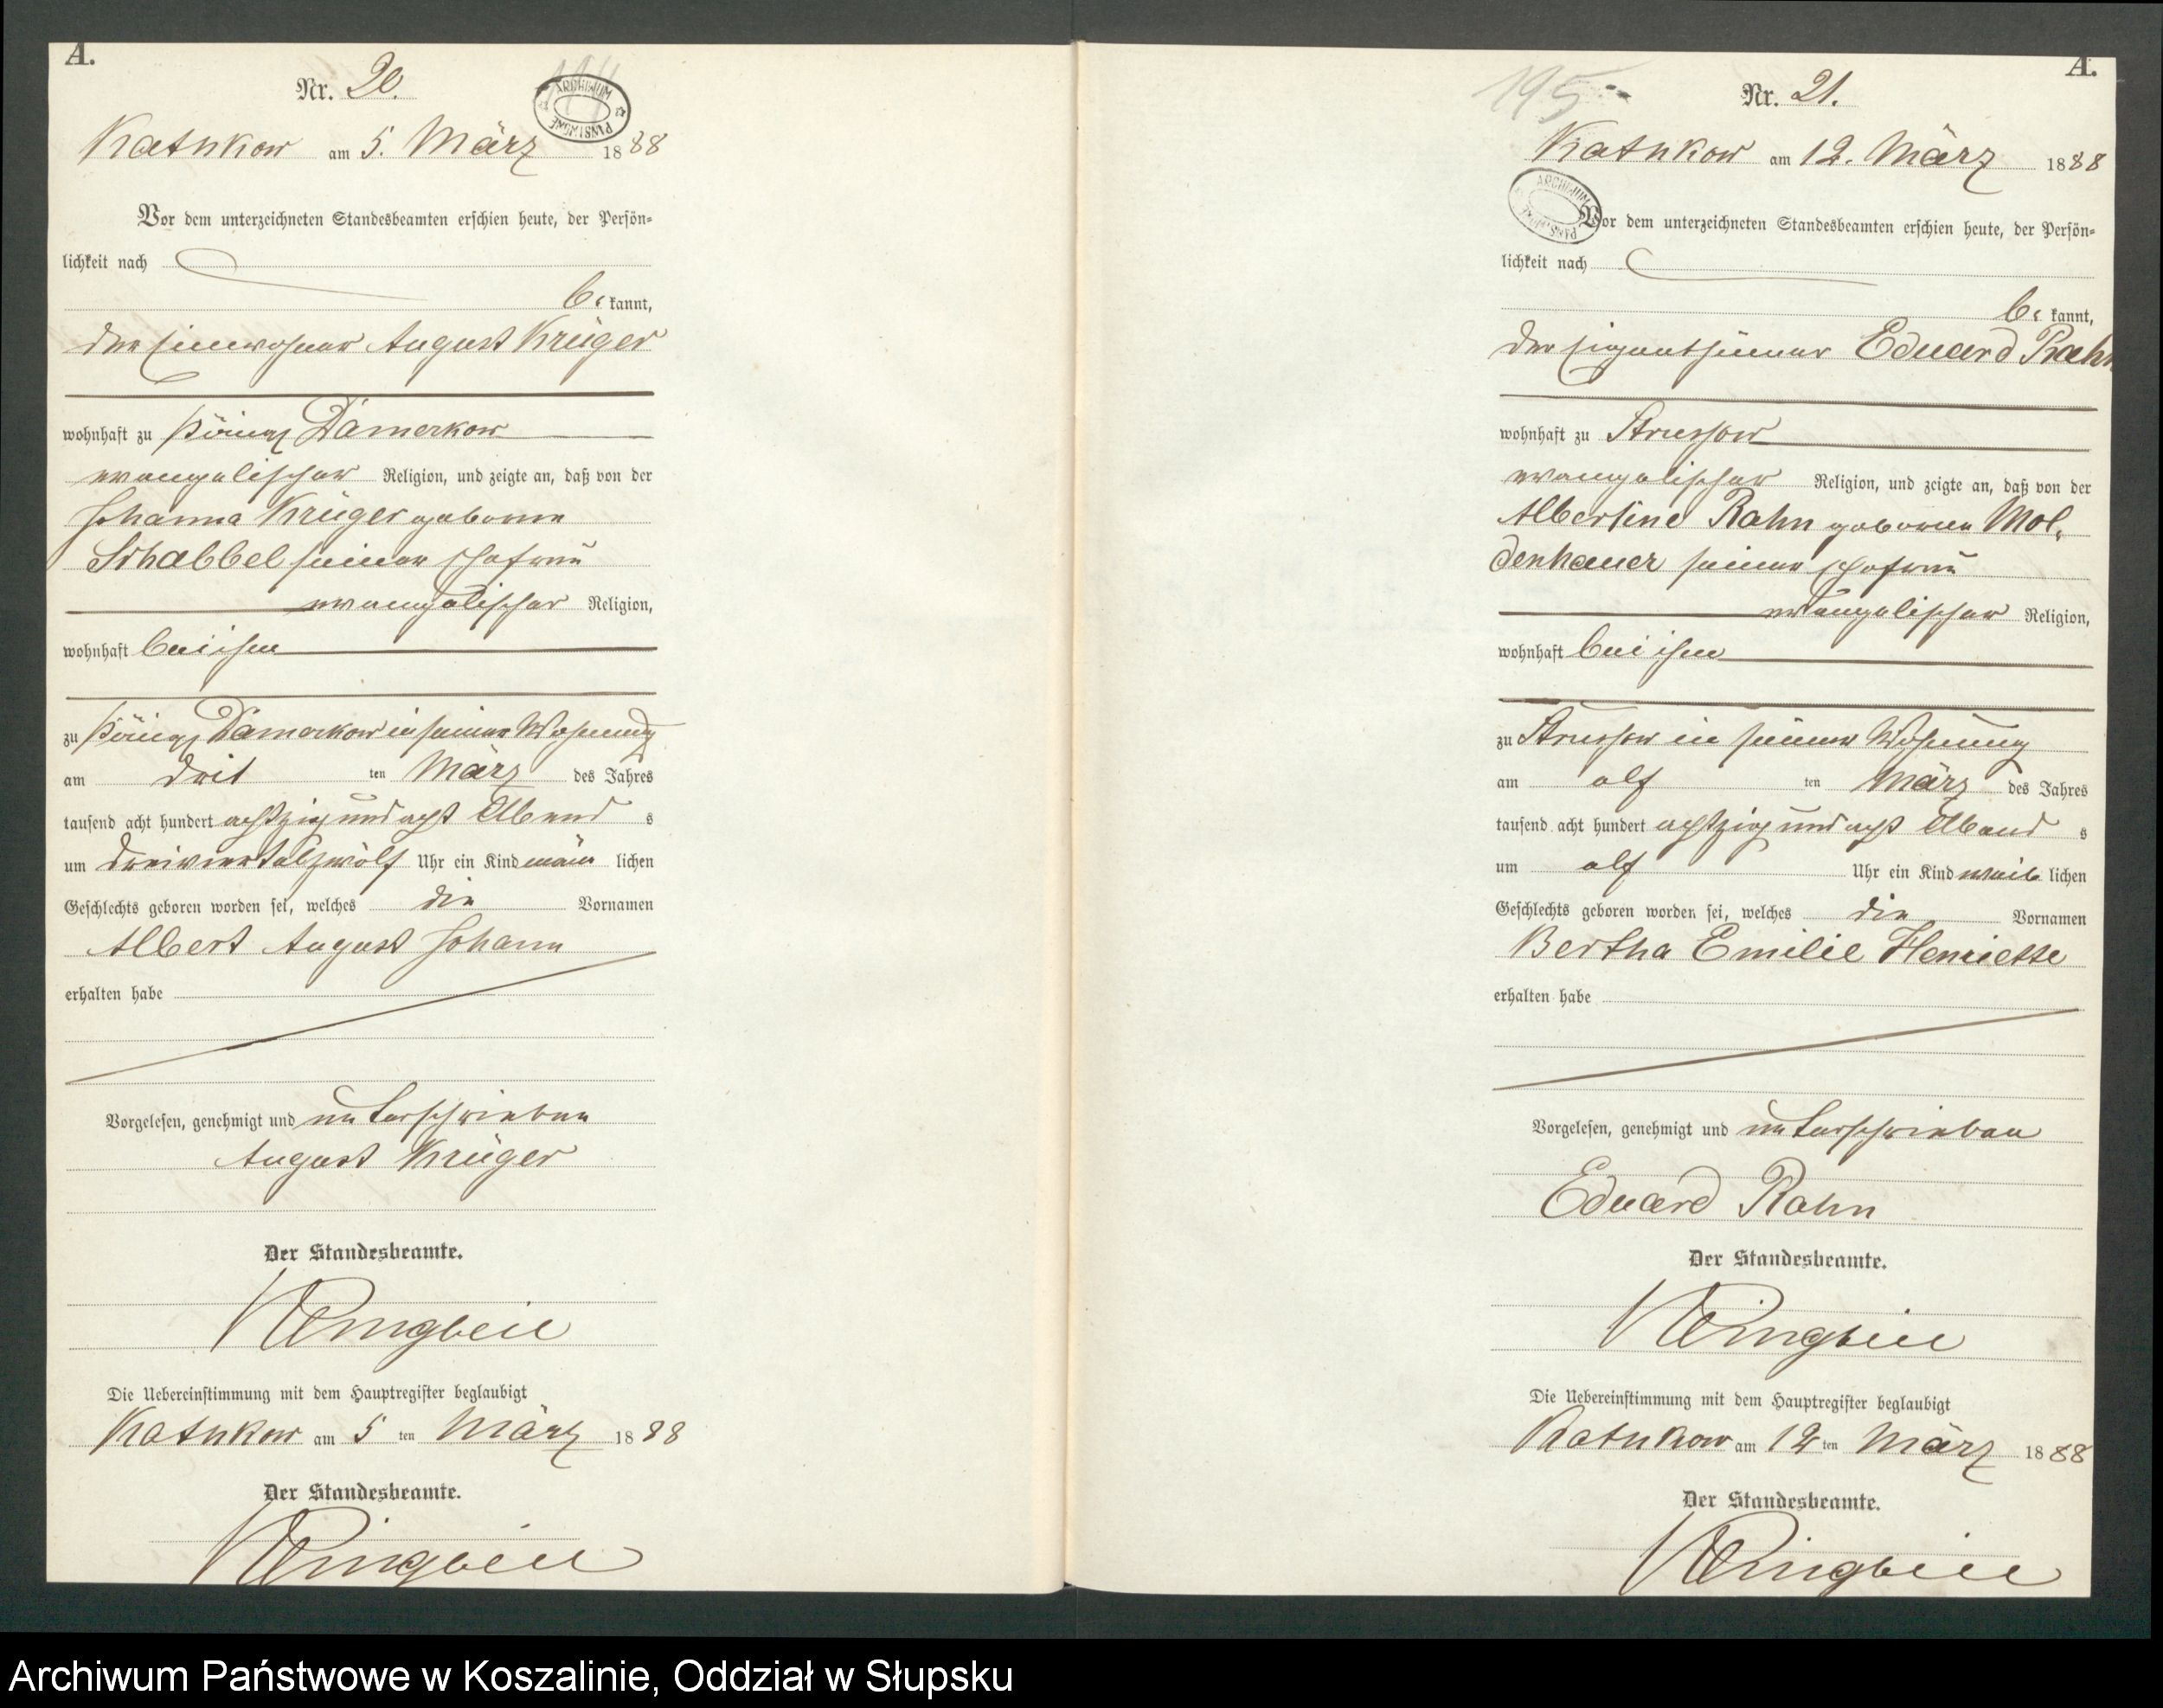 A.
Nr. 20.
ARCHIWUM PAŃSTWOWE
Katnkow am 5. März 1888
Vor dem unterzeichneten Standesbeamten erschien heute, der Persön-
lichkeit nach
be kannt,
der Einwohner August Krüger
wohnhaft zu Damerkow
evangelischer Religion, und zeigte an, daß von der
Johanna Krüger geborene
Schabbel seiner Ehefrau
evangelischer Religion,
wohnhaft bei ihm
zu Damerkow in seiner Wohnung
am drit ten März des Jahres
tausend acht hundert achtzig und acht Abend s
um dreiviertelzwölf Uhr ein Kind männ lichen
Geschlechts geboren worden sei, welches die Vornamen
Albert August Johann
erhalten habe
Vorgelesen, genehmigt und unterschrieben
August Krüger
Der Standesbeamte.
Die Uebereinstimmung mit dem Hauptregister beglaubigt
Katnkow am 5 ten März 1888
Der Standesbeamte.
A.
195
Nr. 21.
Katnkow am 12. März 1888
ARCHIWUM PAŃSTWOWE
Vor dem unterzeichneten Standesbeamten erschien heute, der Persön-
lichkeit nach
be kannt,
der Eigenthümer Eduard Rahn
wohnhaft zu Strussow
evangelischer Religion, und zeigte an, daß von der
Albertine Rahn geborene Mol-
denhauer seiner Ehefrau
evangelischer Religion,
wohnhaft bei ihm
zu Strussow in seiner Wohnung
am elf ten März des Jahres
tausend acht hundert achtzig und acht Abend s
um elf Uhr ein Kind weib lichen
Geschlechts geboren worden sei, welches die Vornamen
Bertha Emilie Henriette
erhalten habe
Vorgelesen, genehmigt und unterschrieben
Eduard Rahn
Der Standesbeamte.
Die Uebereinstimmung mit dem Hauptregister beglaubigt
Katnkow am 12 ten März 1888
Der Standesbeamte.
Archiwum Państwowe w Koszalinie, Oddział w Słupsku